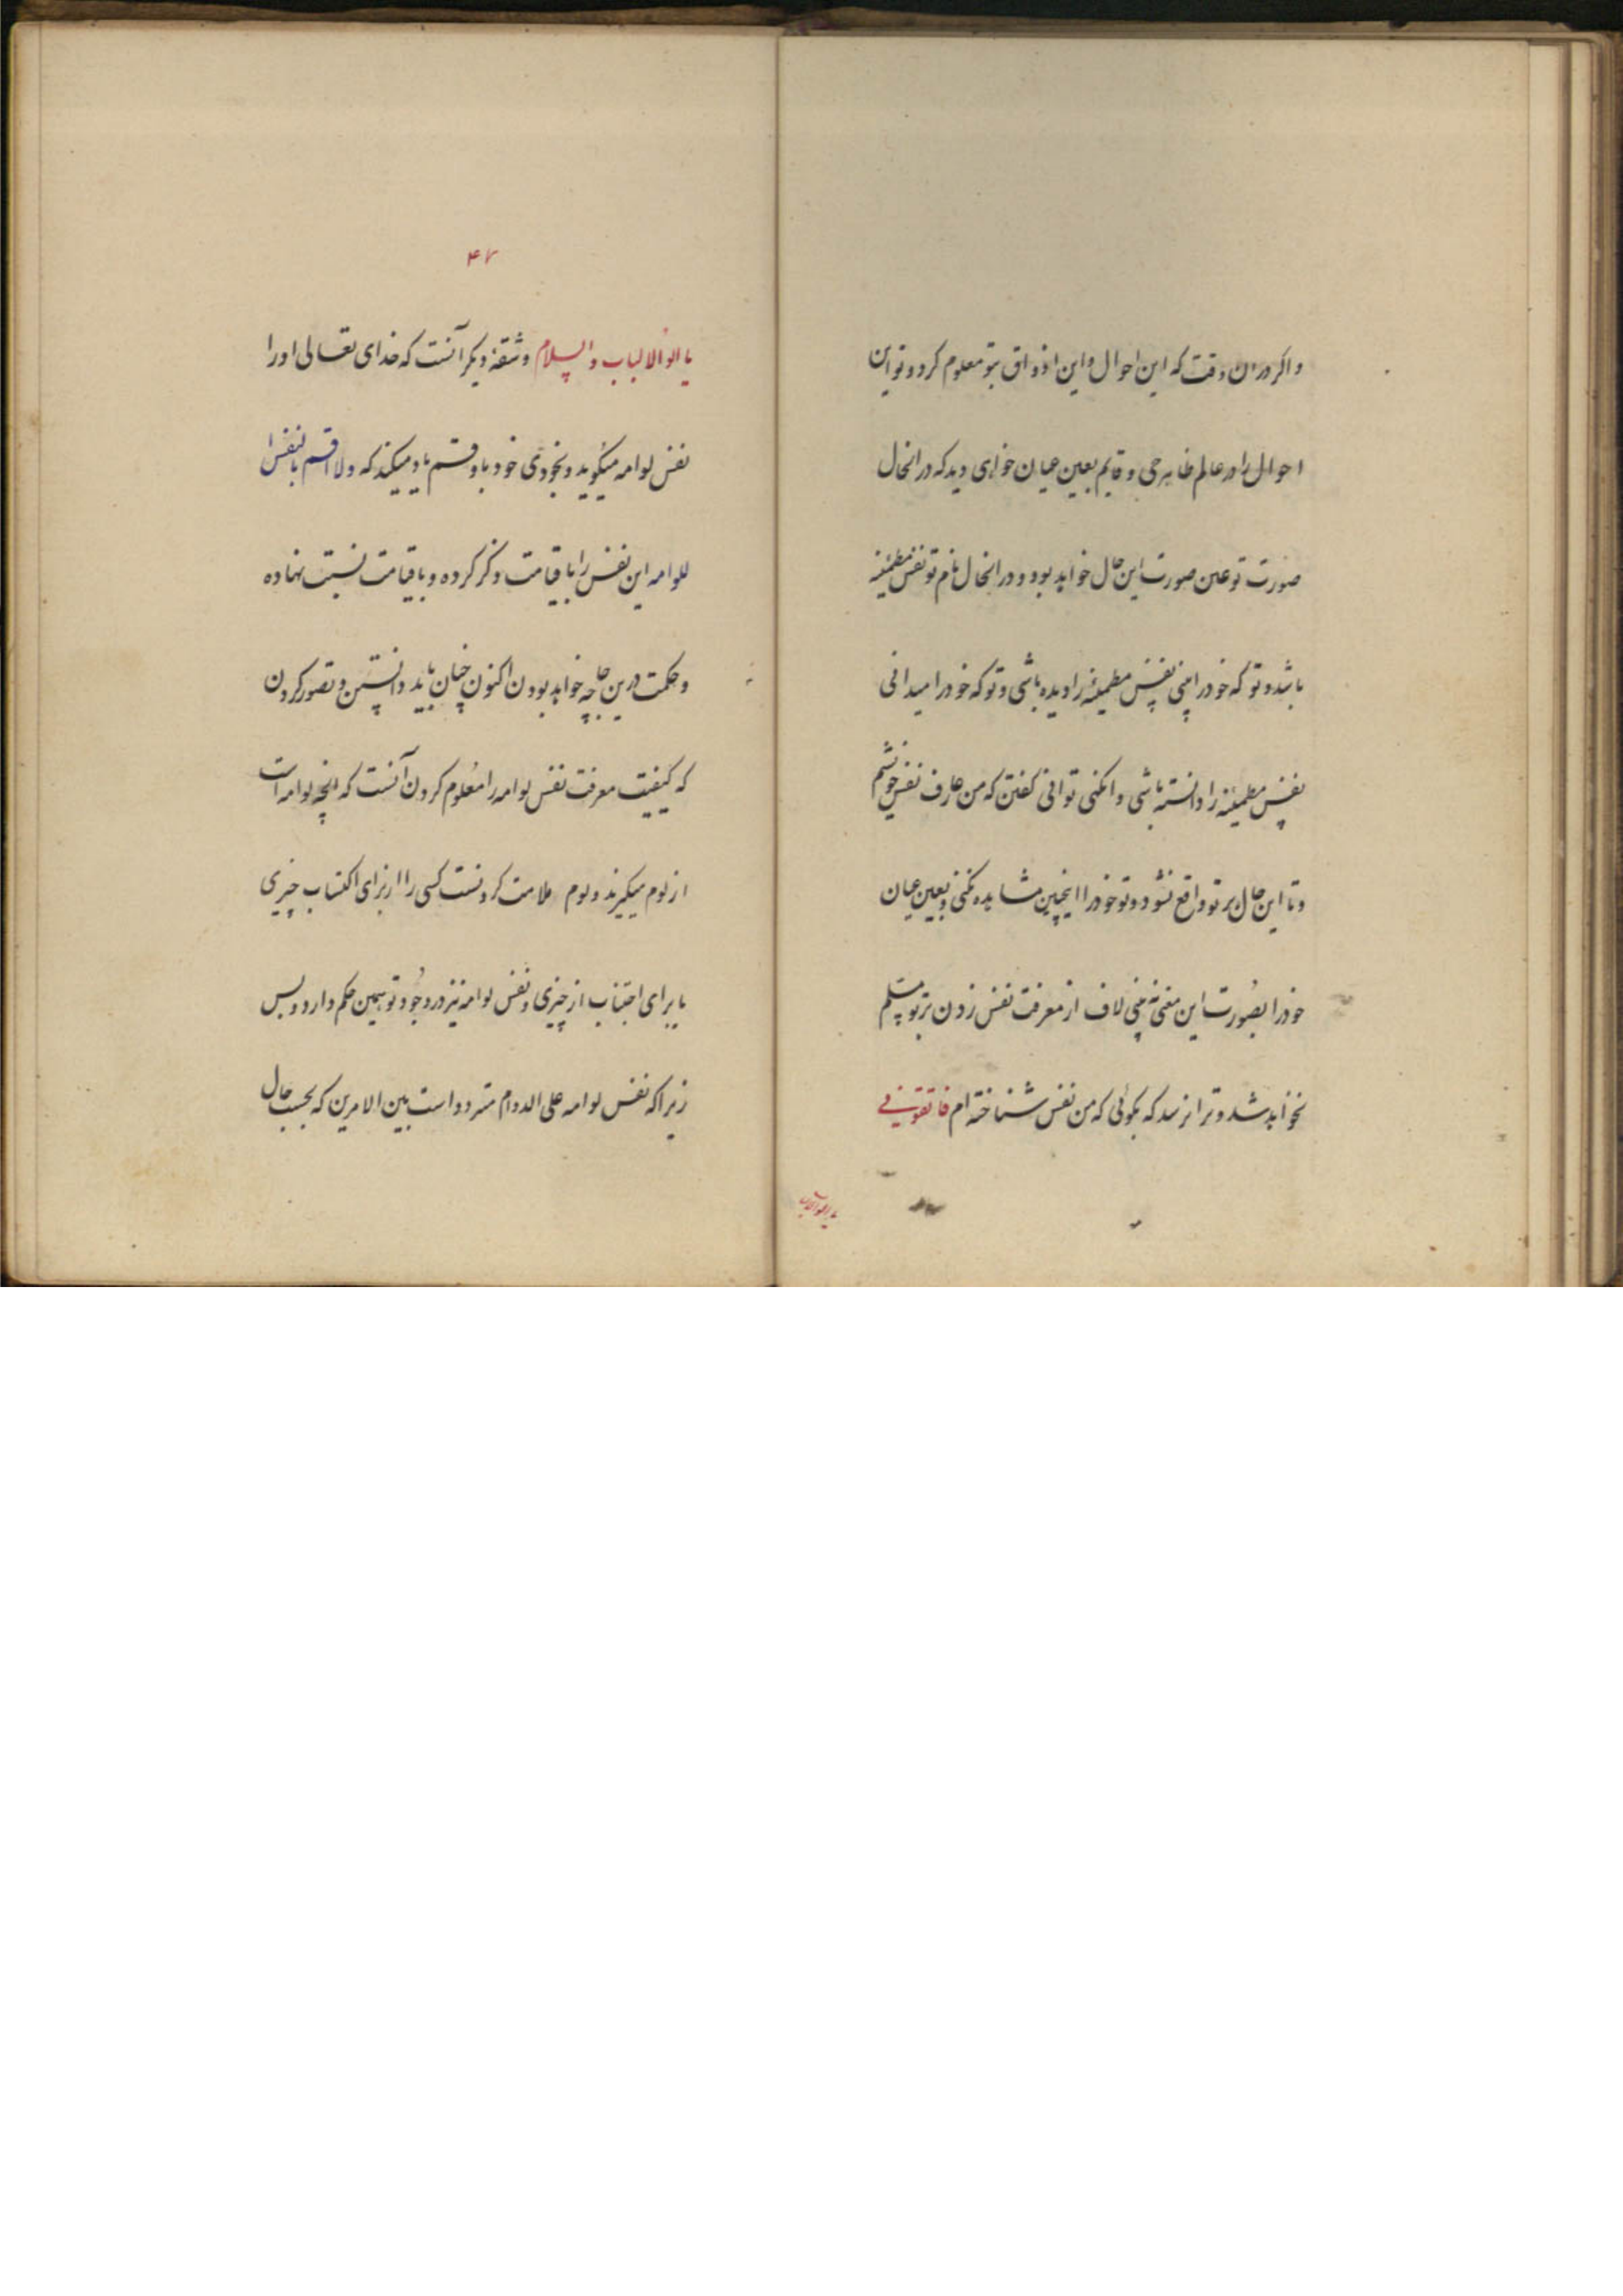 و اکر دران وقت که این احوال و این اذواق بتو معلوم کردد و تو این
احوال را در عالم ظاهر حی و قایم بعین عیان خواهی دید که در انحال
صورت تو عین صورت این حال خواهد بود و در انحال نام تو نفس مطمئنه
باشد و تو که خود را بینی نفس مطمئنه را دیده باشی و تو که خود را میدانی
نفس مطمئنه را دانسته باشی و انکهی توانی کفتن که من عارف نفس خوشم
و تا این حال بر تو واقع نشود و تو خود را اینچنین مشاهده نکنی و بعین عیان
خود را بصورت این معنی نه بینی لاف از معرفت نفس زدن بر تو مسلم
نخواهد شد و ترا نرسد که بکوئی که من نفس شناخته ام فاتقونی
یا اولو الالباب
۴۷
یا الو الالباب و السلام و شقهٔ دیکر آنست که خدای تعالی او را
نفس لوامه میکوید و بخودی خود باو قسم یاد میکند که ولا اقسم بالنفس ا
للوامه این نفس را با قیامت ذکر کرده و با قیامت نسبت نهاده
و حکمت درین جا چه خواهد بودن اکنون چنان باید دانستن و تصور کردن
که کیفیت معرفت نفس لوامه را معلوم کردن آنست که انچه لوامه است
از لوم میکیرند و لوم ملامت کردنست کسی را از برای اکتساب چیزی
یا برای اجتناب از چیزی و نفس لوامه نیز در وجود تو همین حکم دارد و بس
زیرا که نفس لوامه علی الدوام متردد است بین الامرین که بحسب حال